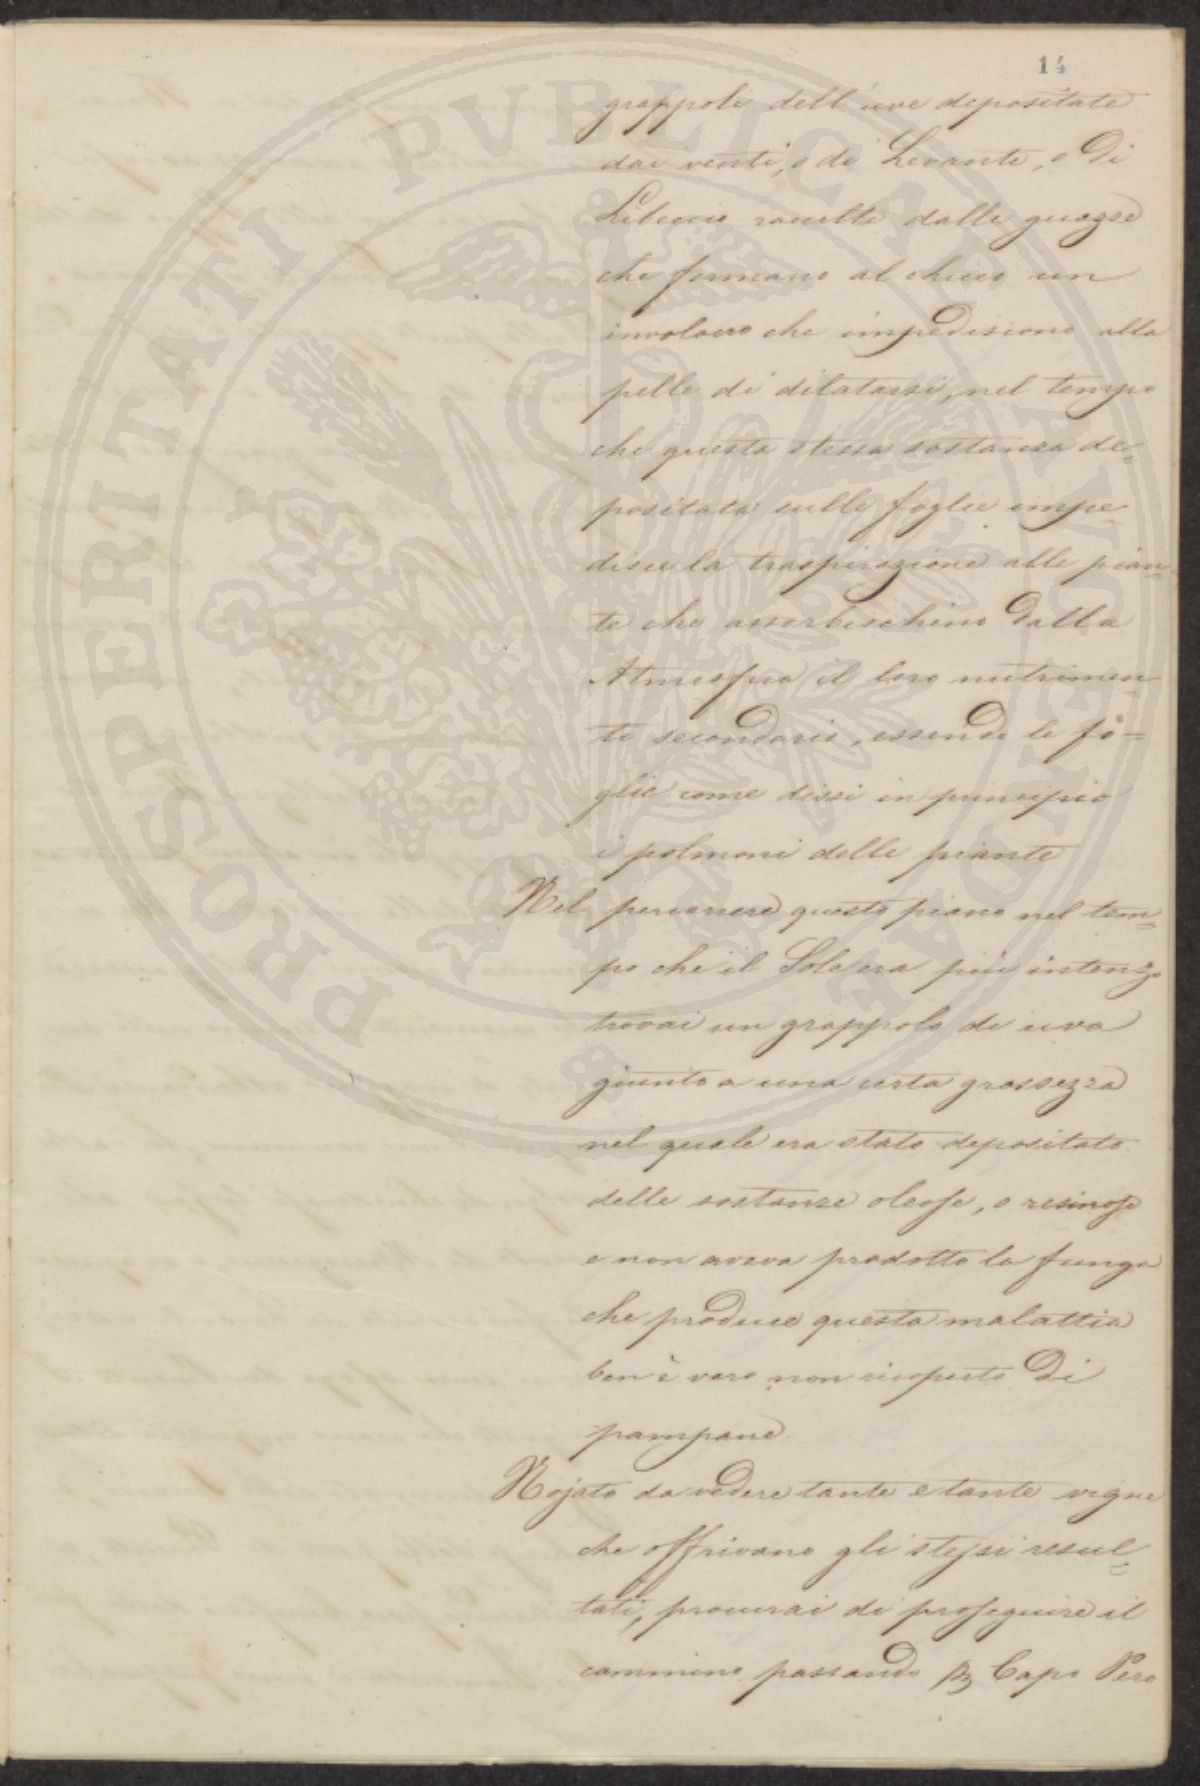 14
grappoli dell'uve depositate
dai venti, o di Levante, o di
Libeccio raccolte dalle guazze
che formano al chicco un
involucro che impediscono alla
pelle di dilatarsi, nel tempo
che questa stessa sostanza de=
positata sulle foglie impe=
disce la traspirazione alle pian=
te che assorbischino dalla
Atmosfera il loro nutrimen=
to secondario, essendo le fo=
glie come dissi in principio
i polmoni delle piante
Nel percorrere questo piano nel tem=
po che il Sole era più intenzo
trovai un grappolo di uva
giunto a una certa grossezza
nel quale era stato depositato
delle sostanze oleose, o resinose
e non aveva prodotto la funga
che produce questa malattia
ben è vero non ricoperto di
pampane.
Nojato da vedere tante e tante vigne
che offrivano gli stessi resul=
tati, procurai di proseguire il
cammino passando per Capo Pero
PROSPERITATI PVBLICAE AVGENDAE